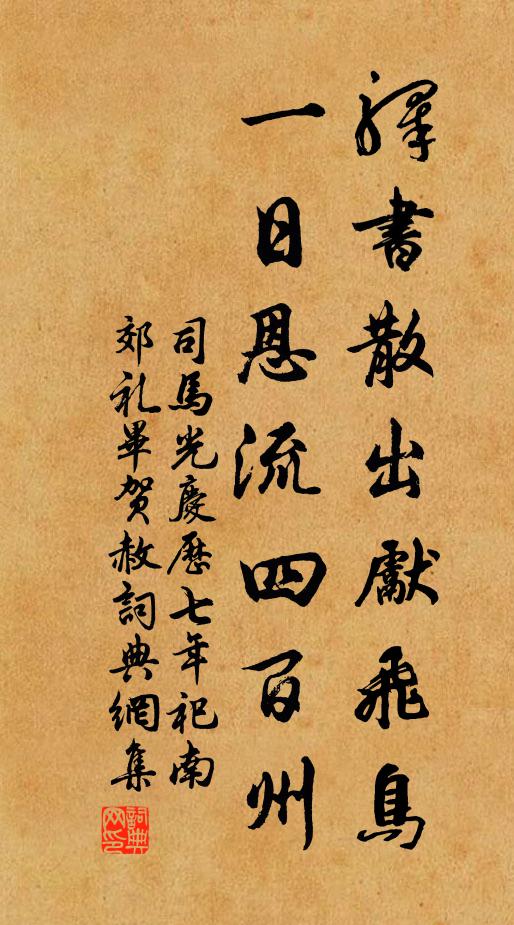 驛書散出獻飛鳥
一日恩流四百州
司馬光慶歷七年祀南
郊礼畢贺赦詞典網集
詞典网印